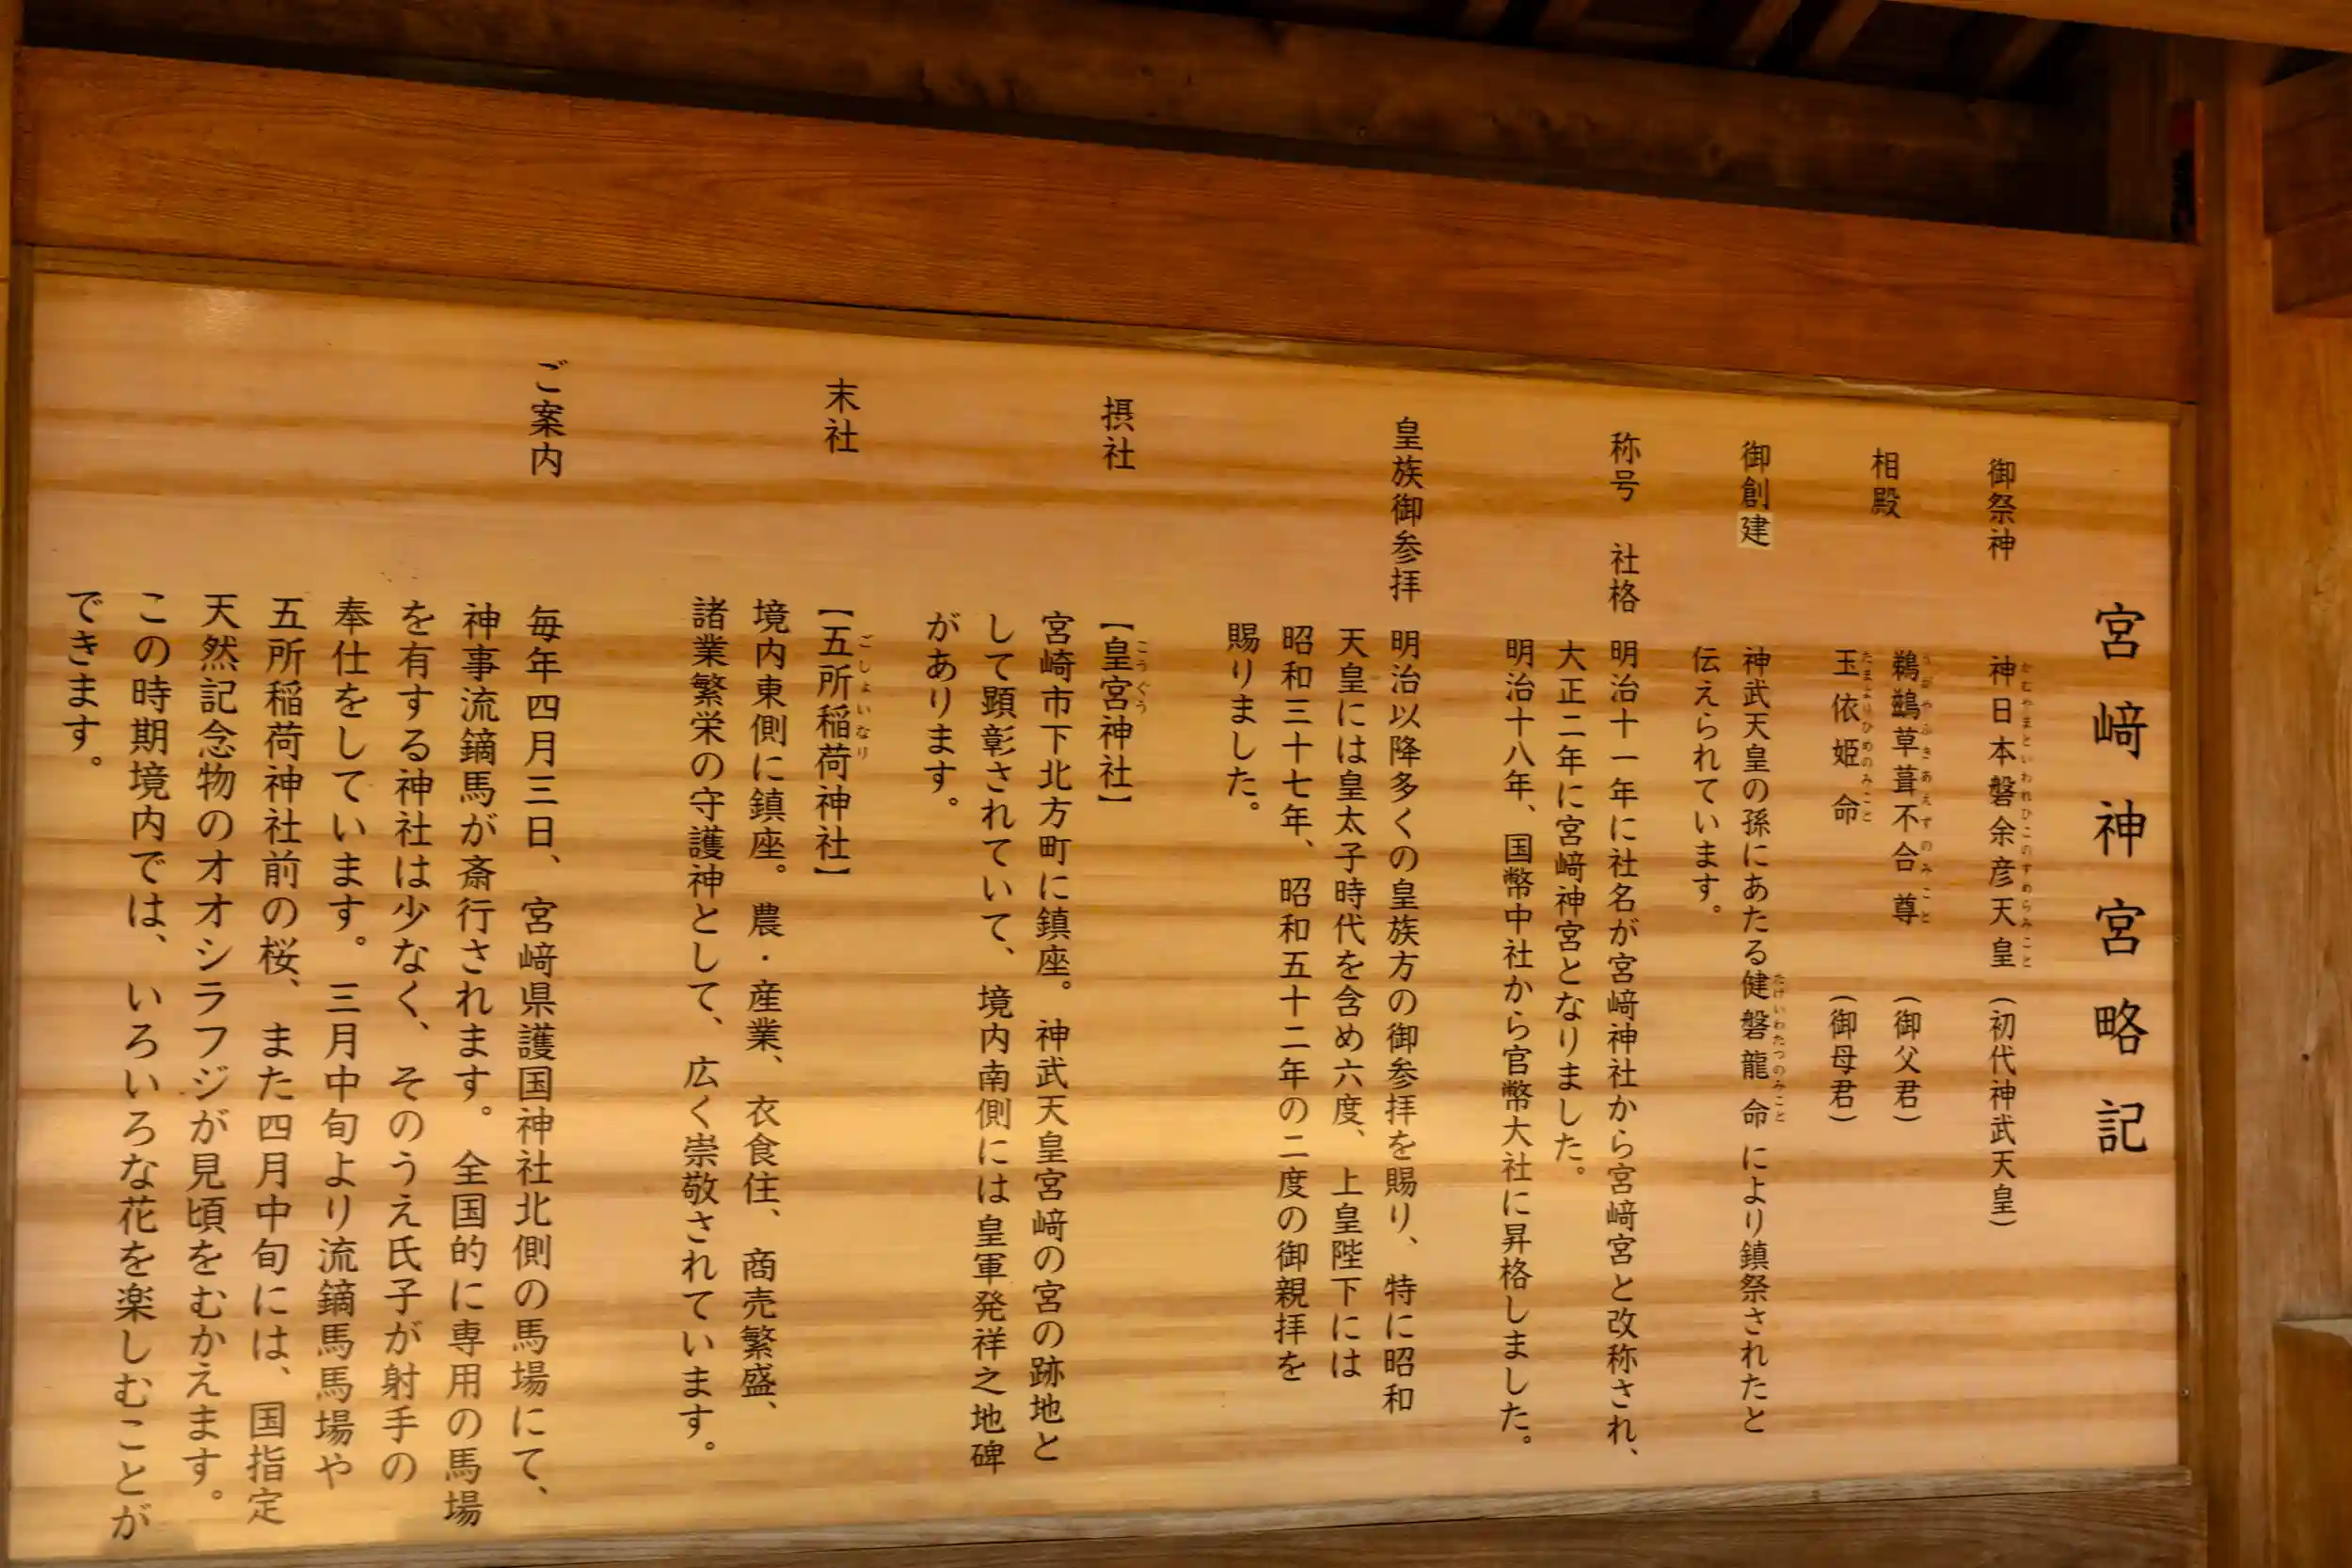 宮﨑神宮略記
御祭神 神日本磐余彦天皇 （初代神武天皇）
かむやまといわれひこのすめらみこと
相殿 鵜鷀草葺不合尊 （御父君）
うがやふきあえずのみこと
玉依姫命 （御母君）
たまよりひめのみこと
御創建 神武天皇の孫にあたる健磐龍命により鎮祭されたと
たけいわたつのみこと
伝えられています。
称号 社格 明治十一年に社名が宮﨑神社から宮﨑宮と改称され、
大正二年に宮﨑神宮となりました。
明治十八年、国幣中社から官幣大社に昇格しました。
皇族御参拝 明治以降多くの皇族方の御参拝を賜り、特に昭和
天皇には皇太子時代を含め六度、上皇陛下には
昭和三十七年、昭和五十二年の二度の御親拝を
賜りました。
摂社 【皇宮神社】
こうぐう
宮崎市下北方町に鎮座。神武天皇宮﨑の宮の跡地と
して顕彰されていて、境内南側には皇軍発祥之地碑
があります。
末社 【五所稲荷神社】
ごしょいなり
境内東側に鎮座。農・産業、衣食住、商売繁盛、
諸業繁栄の守護神として、広く崇敬されています。
ご案内 毎年四月三日、宮﨑県護国神社北側の馬場にて、
神事流鏑馬が斎行されます。全国的に専用の馬場
を有する神社は少なく、そのうえ氏子が射手の
奉仕をしています。三月中旬より流鏑馬馬場や
五所稲荷神社前の桜、また四月中旬には、国指定
天然記念物のオオシラフジが見頃をむかえます。
この時期境内では、いろいろな花を楽しむことが
できます。